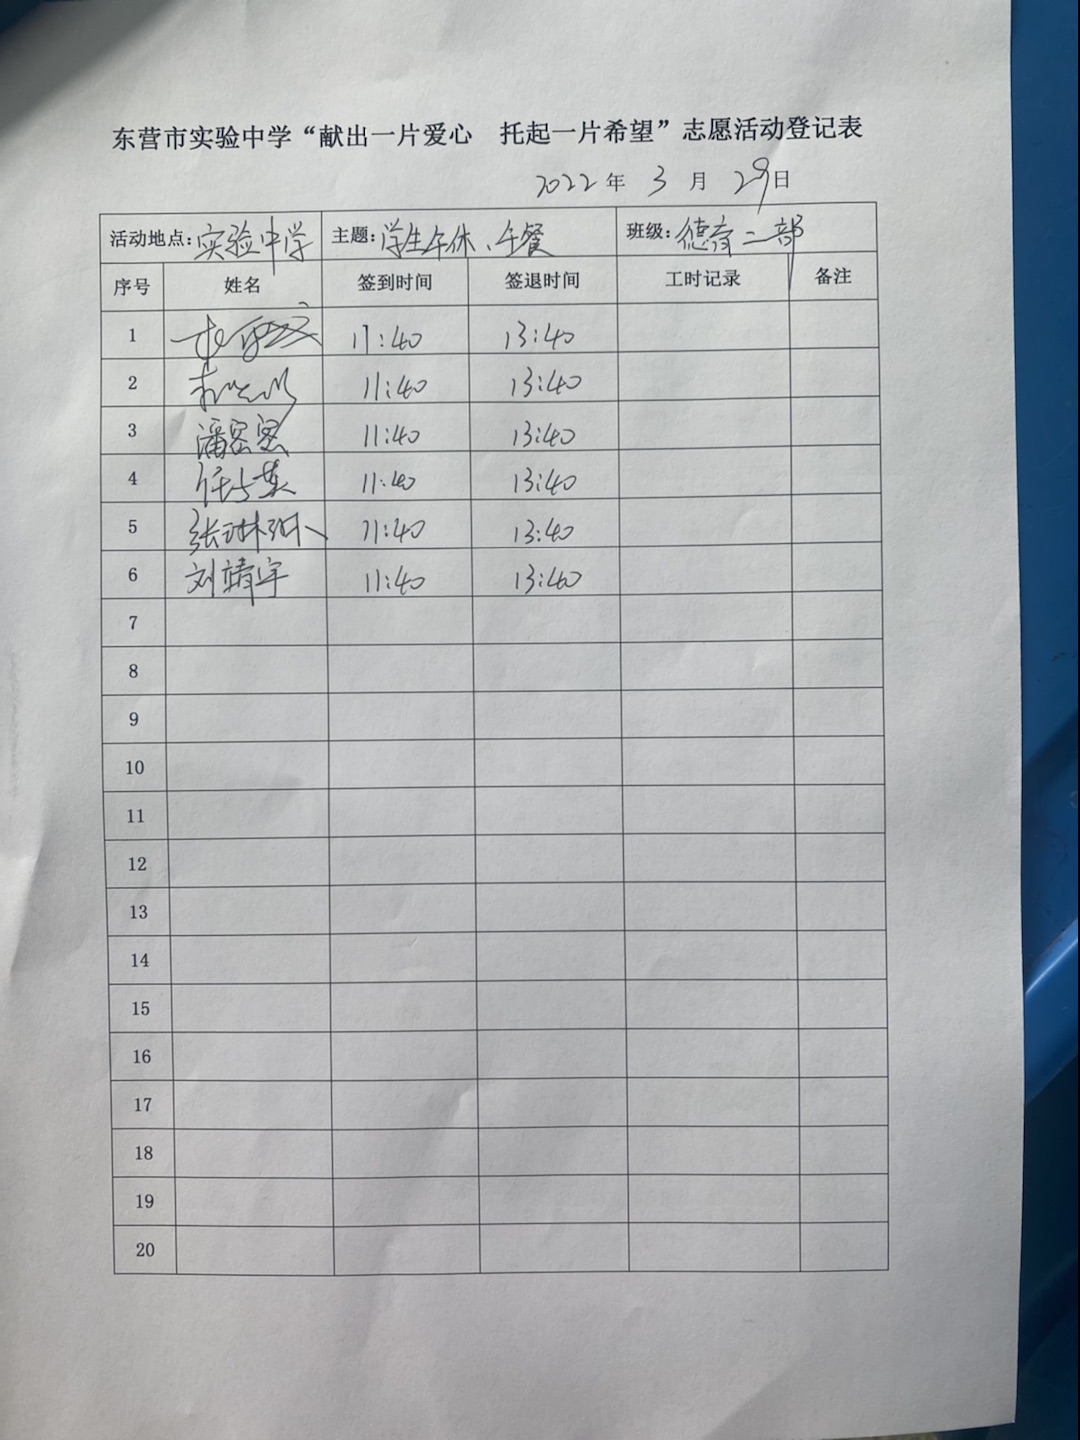 东营市实验中学“献出一片爱心 托起一片希望”志愿活动登记表
2022年 3 月 29日
活动地点:实验中学 主题:学生午休、午餐 班级:德育二部
序号 姓名 签到时间 签退时间 工时记录 备注
1 11:40 13:40
2 11:40 13:40
3 潘密密 11:40 13:40
4 11:40 13:40
5 张琳琳 11:40 13:40
6 刘靖宇 11:40 13:40
7
8
9
10
11
12
13
14
15
16
17
18
19
20